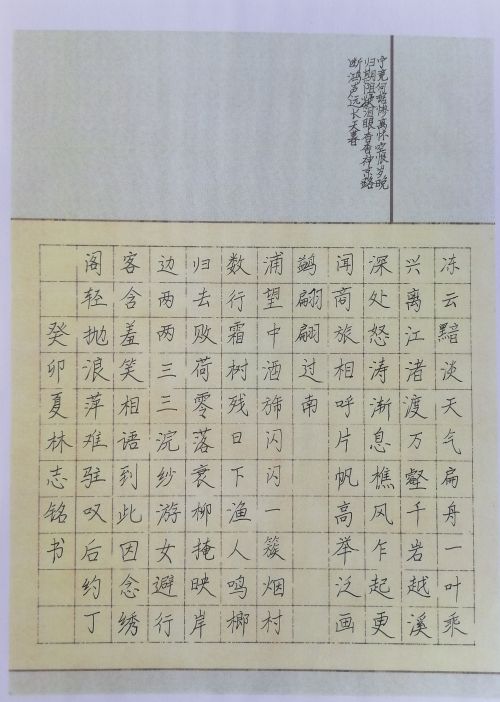 冻云黯淡天气扁舟一叶乘
兴离江渚渡万壑千岩越溪
深处怒涛渐息樵风乍起更
闻商旅相呼片帆高举泛画
鹢翩翩过南
浦望中酒旆闪闪一簇烟村
数行霜树残日下渔人鸣榔
归去败荷零落衰柳掩映岸
边两两三三浣纱游女避行
客含羞笑相语到此因念绣
阁轻抛浪萍难驻叹后约丁
宁竟何据惨离怀空恨岁晚
归期阻凝泪眼杳杳神京路
断鸿声远长天暮
癸卯夏林志铭书